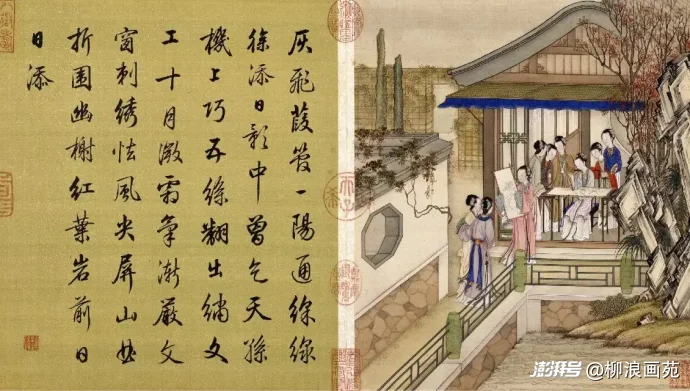 灰飛葭管一陽通綵線
徐添日影中曾乞天孫
機上巧五綵翻出繡文
工十月微霜氣漸嚴文
窗刺綉怯風尖屏山曲
折圍幽榭紅葉岩前日
日添
澎湃号@柳浪画苑